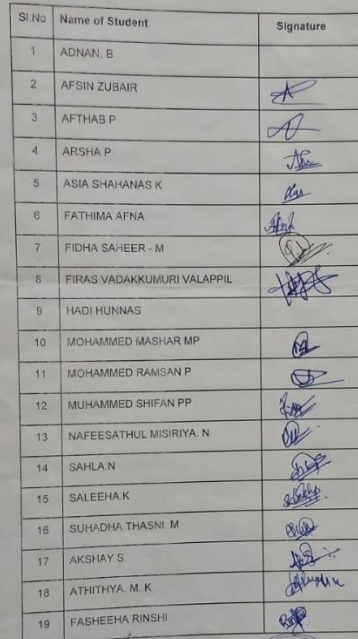 Sl.No Name of Student Signature
1 ADNAN. B
2 AFSIN ZUBAIR
3 AFTHAB P
4 ARSHA P
5 ASIA SHAHANAS K
6 FATHIMA AFNA
7 FIDHA SAHEER - M
8 FIRAS VADAKKUMURI VALAPPIL
9 HADI HUNNAS
10 MOHAMMED MASHAR MP
11 MOHAMMED RAMSAN P
12 MUHAMMED SHIFAN PP
13 NAFEESATHUL MISIRIYA. N
14 SAHLA.N
15 SALEEHA.K
16 SUHADHA THASNI. M
17 AKSHAY S
18 ATHITHYA. M. K
19 FASHEEHA RINSHI